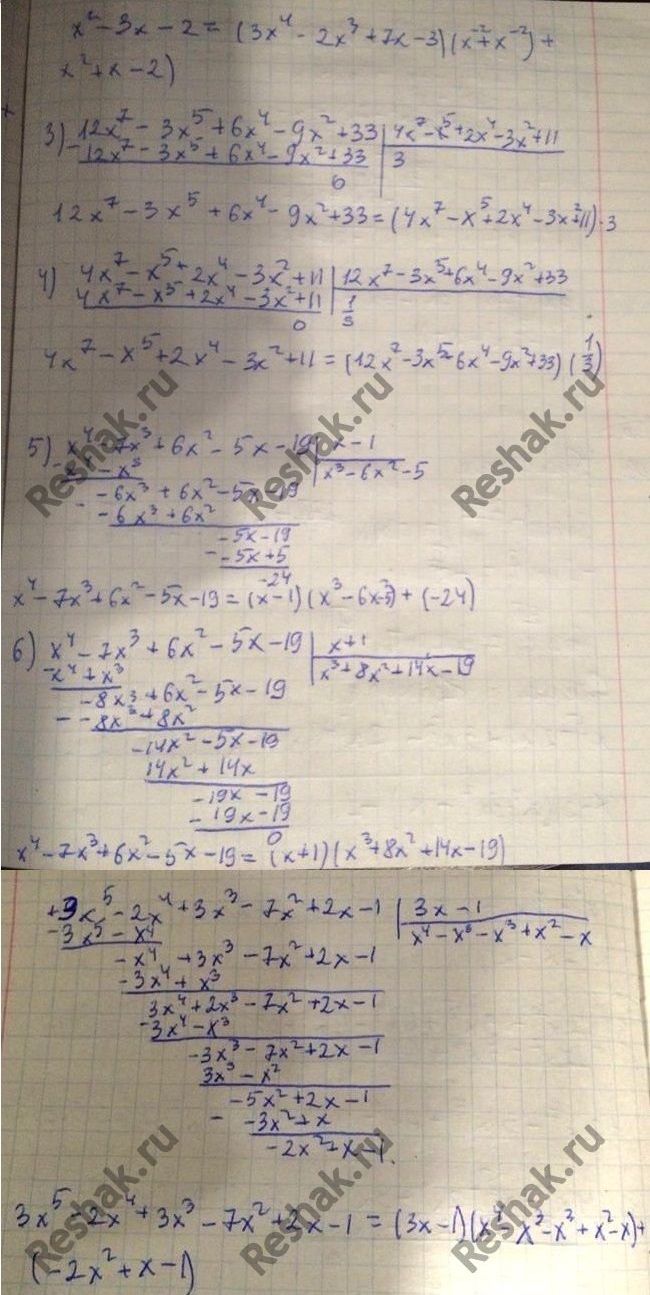 x² - 3x - 2 = (3x⁴ - 2x³ + 7x - 3)(x⁻² + x⁻²) +
x² + x - 2)
3) 12x⁷ - 3x⁵ + 6x⁴ - 9x² + 33 | 4x⁷ - x⁵ + 2x⁴ - 3x² + 11
- 12x⁷ - 3x⁵ + 6x⁴ - 9x² + 33 | 3
0
12x⁷ - 3x⁵ + 6x⁴ - 9x² + 33 = (4x⁷ - x⁵ + 2x⁴ - 3x² + 11) · 3
4) 4x⁷ - x⁵ + 2x⁴ - 3x² + 11 | 12x⁷ - 3x⁵ + 6x⁴ - 9x² + 33
4x⁷ - x⁵ + 2x⁴ - 3x² + 11 | 1/3
0
4x⁷ - x⁵ + 2x⁴ - 3x² + 11 = (12x⁷ - 3x⁵ - 6x⁴ - 9x² + 33) (1/3)
5) x⁴ - 7x³ + 6x² - 5x - 19 | x - 1
- x⁴ - x³ | x³ - 6x² - 5
- 6x³ + 6x² - 5x - 19
- - 6x³ + 6x²
- 5x - 19
- - 5x + 5
- 24
x⁴ - 7x³ + 6x² - 5x - 19 = (x - 1)(x³ - 6x² - 5) + (-24)
6) x⁴ - 7x³ + 6x² - 5x - 19 | x + 1
- x⁴ + x³ | x³ + 8x² + 14x - 19
- 8x³ + 6x² - 5x - 19
- - 8x³ + 8x²
- 14x² - 5x - 19
14x² + 14x
- 19x - 19
- 19x - 19
0
x⁴ - 7x³ + 6x² - 5x - 19 = (x + 1)(x³ + 8x² + 14x - 19)
+3x⁵ - 2x⁴ + 3x³ - 7x² + 2x - 1 | 3x - 1
- 3x⁵ - x⁴ | x⁴ - x³ - x³ + x² - x
- x⁴ + 3x³ - 7x² + 2x - 1
- 3x⁴ + x³
3x⁴ + 2x³ - 7x² + 2x - 1
- 3x⁴ - x³
- 3x³ - 7x² + 2x - 1
3x³ - x²
- 5x² + 2x - 1
- - 3x² + x
- 2x² + x - 1.
3x⁵ - 2x⁴ + 3x³ - 7x² + 2x - 1 = (3x - 1)(x⁴ - x³ - x³ + x² - x) +
(- 2x² + x - 1)
Reshak.ru
Reshak.ru
Reshak.ru
Reshak.ru
Reshak.ru
Reshak.ru